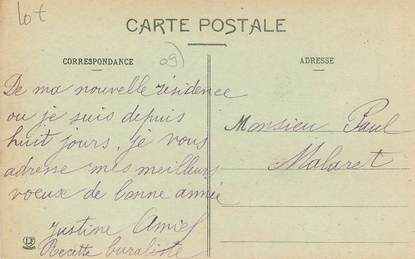 Lot
CARTE POSTALE
CORRESPONDANCE
ADRESSE
De ma nouvelle résidence
ou je suis depuis
huit jours, je vous
adresse mes meilleurs
voeux de bonne année
Justine Amiel
Recette buraliste
Monsieur Paul
Malaret